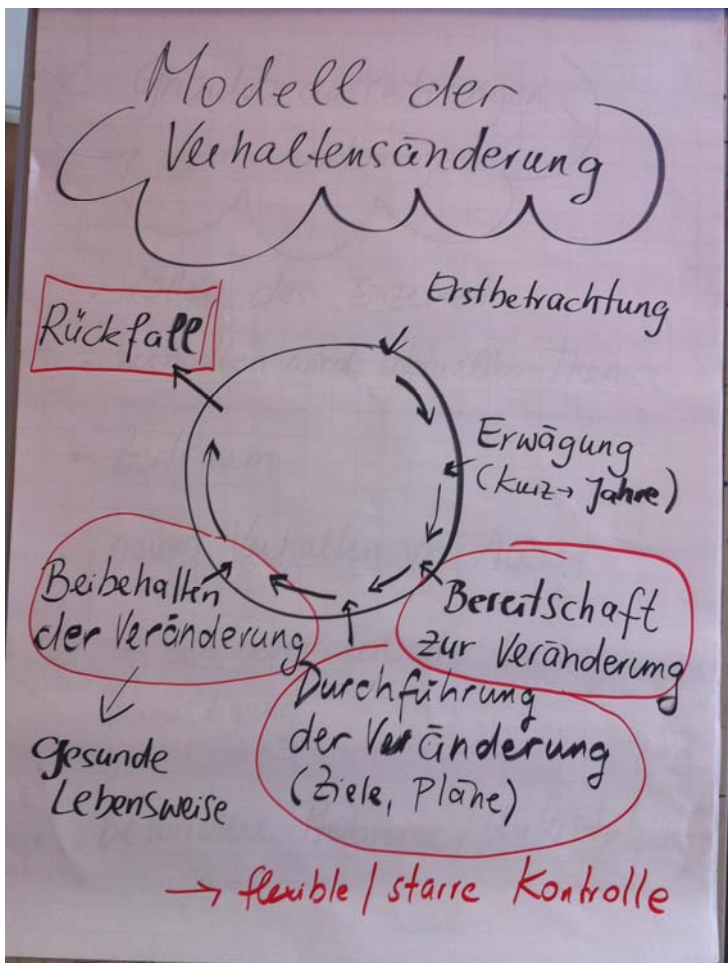 Modell der
Verhaltensänderung
Erstbetrachtung
Rückfall
Erwägung
(kurz → Jahre)
Bereitschaft
zur Veränderung
Durchführung
der Veränderung
(Ziele, Pläne)
Beibehalten
der Veränderung
gesunde
Lebensweise
→ flexible / starre Kontrolle